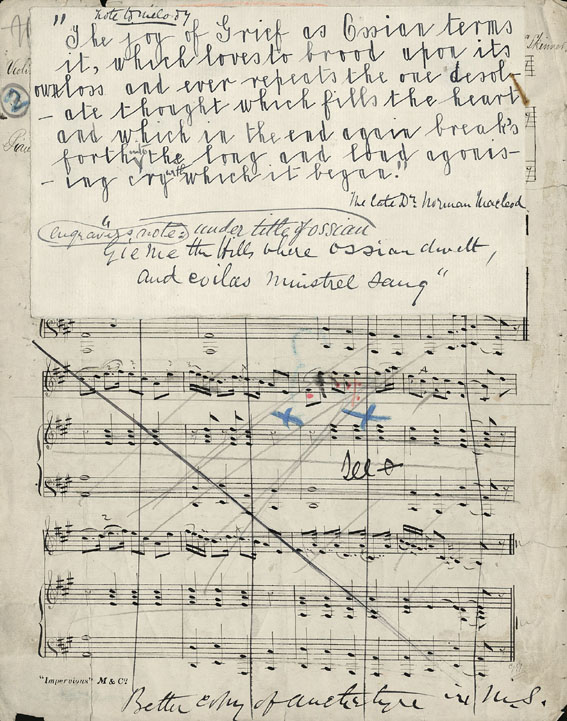 Note to melody
"The joy of Grief as Ossian terms
it, which loves to brood upon its
own loss and ever repeats the one desol-
-ate thought which fills the heart
and which in the end again break's
forth into the long and loud agonis-
-ing cry with which it began."
The late Dr Norman Macleod.
engravers note under title of ossian
"Gie me the Hills where ossian dwelt,
and coilas minstrel sang"
Skinner
Violin
2
Pia
See
"Impervious" M & Co
Better copy of another in M.S.